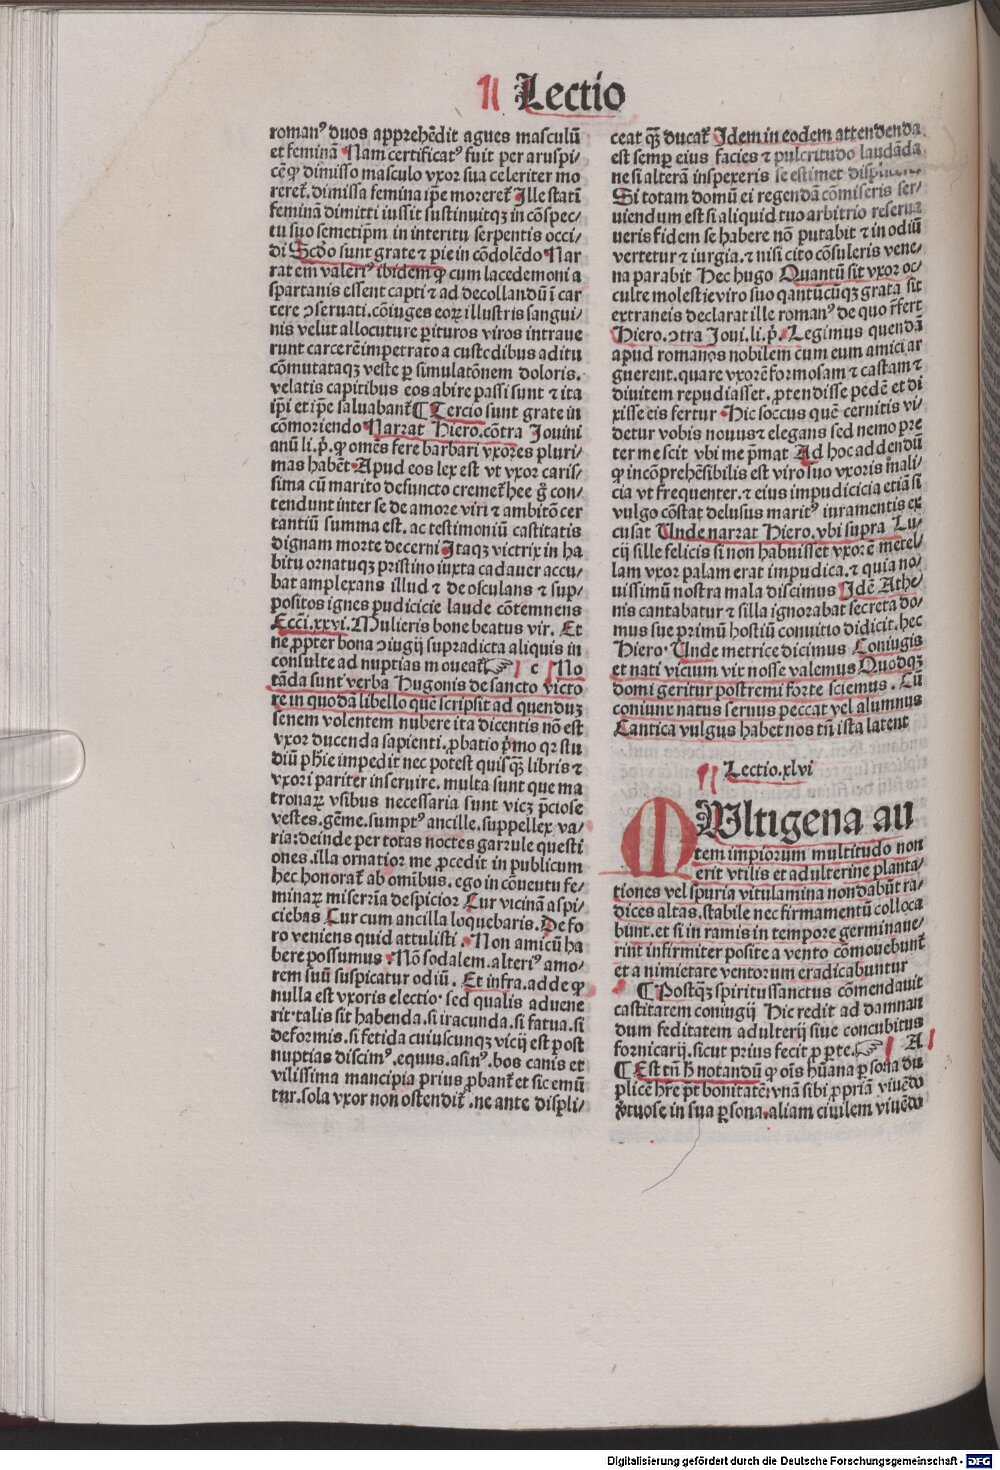 Lectio
romanꝰ duos apprehēdit agues masculū
et feminā Nam certificatꝰ fuit per aruspi/
cē ꝙ dimisso masculo vxor sua celeriter mo
reret᷑. dimissa femina ip̄e moreret᷑ Ille statī
feminā dimitti iussit sustinuitqꝫ in cōspec/
tu suo semetip̄m in interitu serpentis occi/
di Scd̄o sunt grate ⁊ pie in cōdolēdo Nar
rat em̄ valeriꝰ ibidem ꝙ cum lacedemonii a
spartanis essent capti ⁊ ad decollandū ī car
cere ↄseruati. cōiuges eoꝝ illustris sangui/
nis velut allocuture ꝑituros viros intraue
runt carcerē impetrato a custodibus aditu
cōmutataqꝫ veste ꝑ simulatōnem doloris.
velatis capitibus eos abire passi sunt ⁊ ita
ip̄i et ip̄e saluabant᷑ ¶ Tercio sunt grate in
cōmoriendo Narrat Hiero. cōtra Jouini
anū li. p̄. ꝙ omēs fere barbari vxores pluri/
mas habēt Apud eos lex est vt vxor caris/
sima cū marito defuncto cremet᷑ hee g̃ con/
tendunt inter se de amore viri ⁊ ambitōe cer
tantiū summa est. ac testimoniū castitatis
dignam morte decerni Itaqꝫ victrix in ha
bitu ornatuqꝫ pristino iuxta cadauer accu/
bat amplexans illud ⁊ de osculans ⁊ sup/
positos ignes pudicicie laude cōtemnens
Ecci. xxvi. Mulieris bone beatus vir. Et
ne ꝓpter bona ↄiugij supradicta aliquis in
consulte ad nuptias moueat᷑ ☞ c No
tāda sunt verba Hugonis de sancto victo
re in quodā libello que scripsit ad quenduꝫ
senem volentem nubere ita dicentis nō est
vxor ducenda sapienti. ꝓbatio p̄mo qꝛ stu
diū ph̄ie impedit nec potest quisqꝫ̄ libris ⁊
vxori pariter inseruire. multa sunt que ma
tronaꝝ vsibus necessaria sunt vicꝫ p̄ciose
vestes. gēme. sumptꝰ ancille. suppellex va/
ria: deinde per totas noctes garrule questi
ones. illa ornatior me ꝓcedit in publicum
hec honorat᷑ ab om̄ibus. ego in cōuentu fe/
minaꝝ miserria despicior Cur vicinā aspi/
ciebas Cur cum ancilla loquebaris. De fo
ro veniens quid attulisti. Non amicū ha
bere possumus Nō sodalem. alteriꝰ amo/
rem suū suspicatur odiū. Et infra. adde ꝙ
nulla est vxoris electio. sed qualis aduene
rit. talis sit habenda. si iracunda. si fatua. si
deformis. si fetida cuiuscunqꝫ vicij est post
nuptias discimꝰ. equus. asinꝰ. bos canis et
vilissima mancipia prius ꝓbant᷑ et sic emū
tur. sola vxor non ostendit᷑. ne ante displi/
ceat qꝫ̄ ducat᷑ Idem in eodem attendenda
est semꝑ eius facies ⁊ pulcritudo laudāda
ne si alterā inspexeris se estimet
Si totam domū ei regendā cōmiseris ser/
uiendum est si aliquid tuo arbitrio reserua
ueris fidem se habere nō putabit ⁊ in odiū
vertetur ⁊ iurgia. ⁊ nisi cito cōsuleris vene/
na parabit Hec hugo Quantū sit vxor oc/
culte molestie viro suo qantūcūqꝫ grata sit
extraneis declarat ille romanꝰ de quo r̄fert
Hiero. ↄtra Joui. li. p̄. Legimus quendā
apud romanos nobilem cum eum amici ar
guerent. quare vxorē formosam ⁊ castam ⁊
diuitem repudiasset. ꝓtendisse pedē et di
xisse eis fertur Hic soccus quē cernitis vi/
detur vobis nouus ⁊ elegans sed nemo pre
ter me scit vbi me p̄mat Ad hoc addendū
ꝙ incōprehēsibilis est viro suo vxoris mali/
cia vt frequenter. ⁊ eius impudicicia etiā si
vulgo cōstat delusus maritꝰ iuramentis ex
cusat Unde narrat Hiero. vbi supra Lu/
cij sille felicis si non habuisset vxorē metel/
lam vxor palam erat impudica. ⁊ quia no/
uissimū nostra mala discimus Idē Athe/
nis cantabatur ⁊ silla ignorabat secreta do/
mus sue primū hostiū conuitio didicit. hec
Hiero. Unde metrice dicimus Coniugis
et nati vicium vix nosse valemus Quodqꝫ
domi geritur postremi forte sciemus. Cū
coniunx natus seruus peccat vel alumnus
Cantica vulgus habet nos tn̄ ista latent
Lectio. xlvi
MUltigena au
tem impiorum multitudo non
erit vtilis et adulterine planta/
tiones vel spuria vitulamina non dabūt ra/
dices altas. stabile nec firmamentū colloca
bunt. et si in ramis in tempore germinaue/
rint infirmiter posite a vento cōmouebunt᷑
et a nimietate ventorum eradicabuntur
¶ Postqꝫ̄ spiritussanctus cōmendauit
castitatem coniugij Hic redit ad damnan
dum feditatem adulterij siue concubitus
fornicarij. sicut prius fecit ꝓ parte. ☞ A
¶ Est tn̄ h̄ notandū ꝙ oīs hūana ꝑsona du
plicē hr̄e pōt bonitatē: vnā sibi ꝓpriā viuēdo
v̓tuose in sua ꝑsona. aliam ciuilem viuēdo
Digitalisierung gefördert durch die Deutsche Forschungsgemeinschaft - DFG